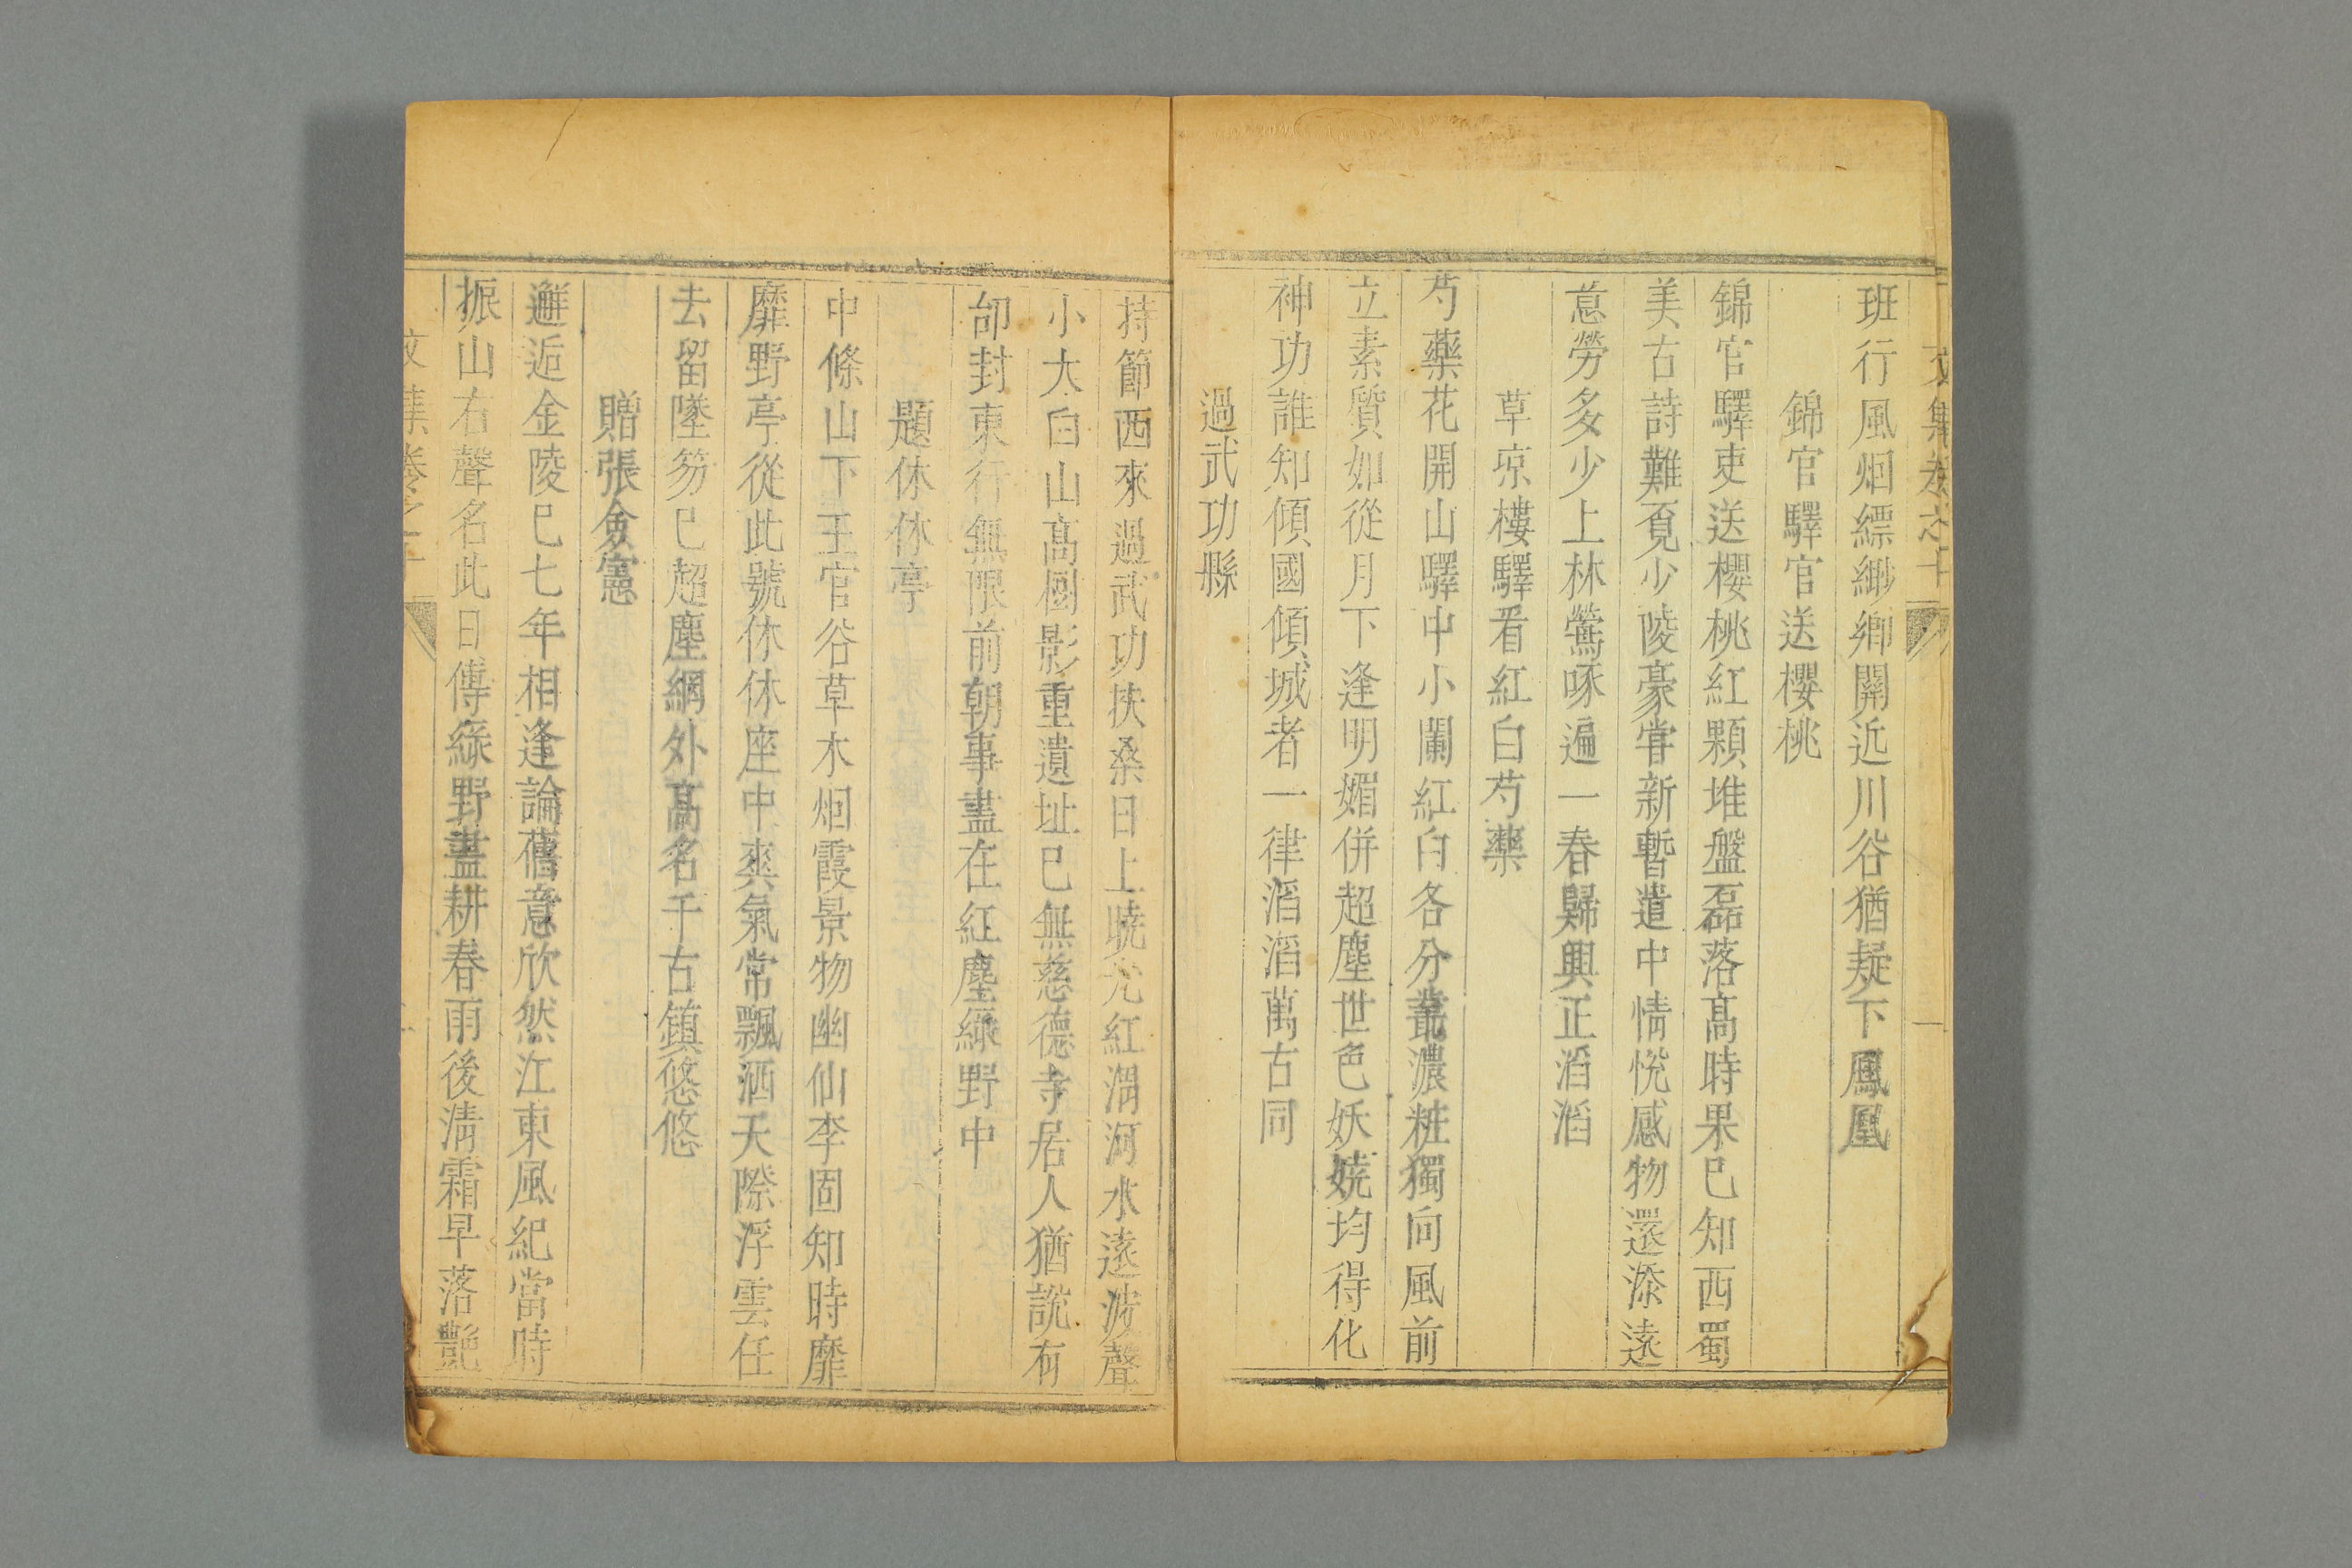 文集卷之十
班行風烟縹緲鄉關近川谷猶疑下鳳凰
錦官驛官送櫻桃
錦官驛吏送櫻桃紅顆堆盤磊落高時果已知西蜀
美古詩難覔少陵豪甞新暫遣中情悅感物還添遠
意勞多少上林鶯啄遍一春歸興正滔滔
草凉樓驛看紅白芍藥
芍藥花開山驛中小闌紅白各分叢濃粧獨向風前
立素質如從月下逢明媚併超塵世色妖嬈均得化
神功誰知傾國傾城者一律滔滔萬古同
過武功縣
持節西來過武功扶桑日上曉光紅渭河水遠波聲
小太白山高樹影重遺址已無慈德寺居人猶說有
邰封東行無限前朝事盡在紅塵綠野中
題休休亭
中條山下王官谷草木烟霞景物幽仙李固知時靡
靡野亭從此號休休座中爽氣常飄洒天際浮雲任
去留墜笏已超塵網外高名千古鎮悠悠
贈張僉憲
邂逅金陵已七年相逢論舊意欣然江東風紀當時
振山右聲名此日傳綠野盡耕春雨後清霜早落艷
文集卷之十